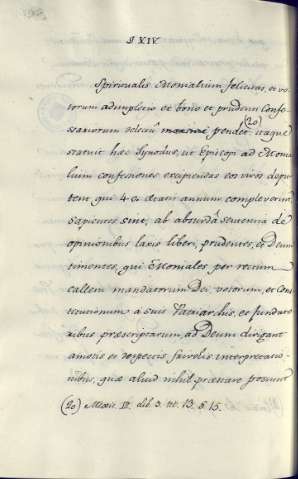 § XIV
Spiritualis Monialium felicitas, et vo-
torum adimpletio et bono et prudenti Confe-
ssariorum delectu pendet: (20) itaque
statuit hæc Synodus, ut Episcopi ad Monia-
lium confessiones excipiendas eos viros depu-
tent, qui 40 ætatis annum compleverint,
Sapientes sint, ab absurda sententia de
opinionibus laxis liberi, prudentes, et Deum
timentes, qui Moniales per rectum
callem mandatorum Dei, votorum, et Cons-
titutionum a suis Patriarchis, et fundato-
ribus præscriptarum, ad Deum dirigant
amotis et rejectis, futilis interpretatio-
nibus, quæ aliud nihil præstare possunt
(20) Mexic. III. lib. 3. tit. 13. § 15.